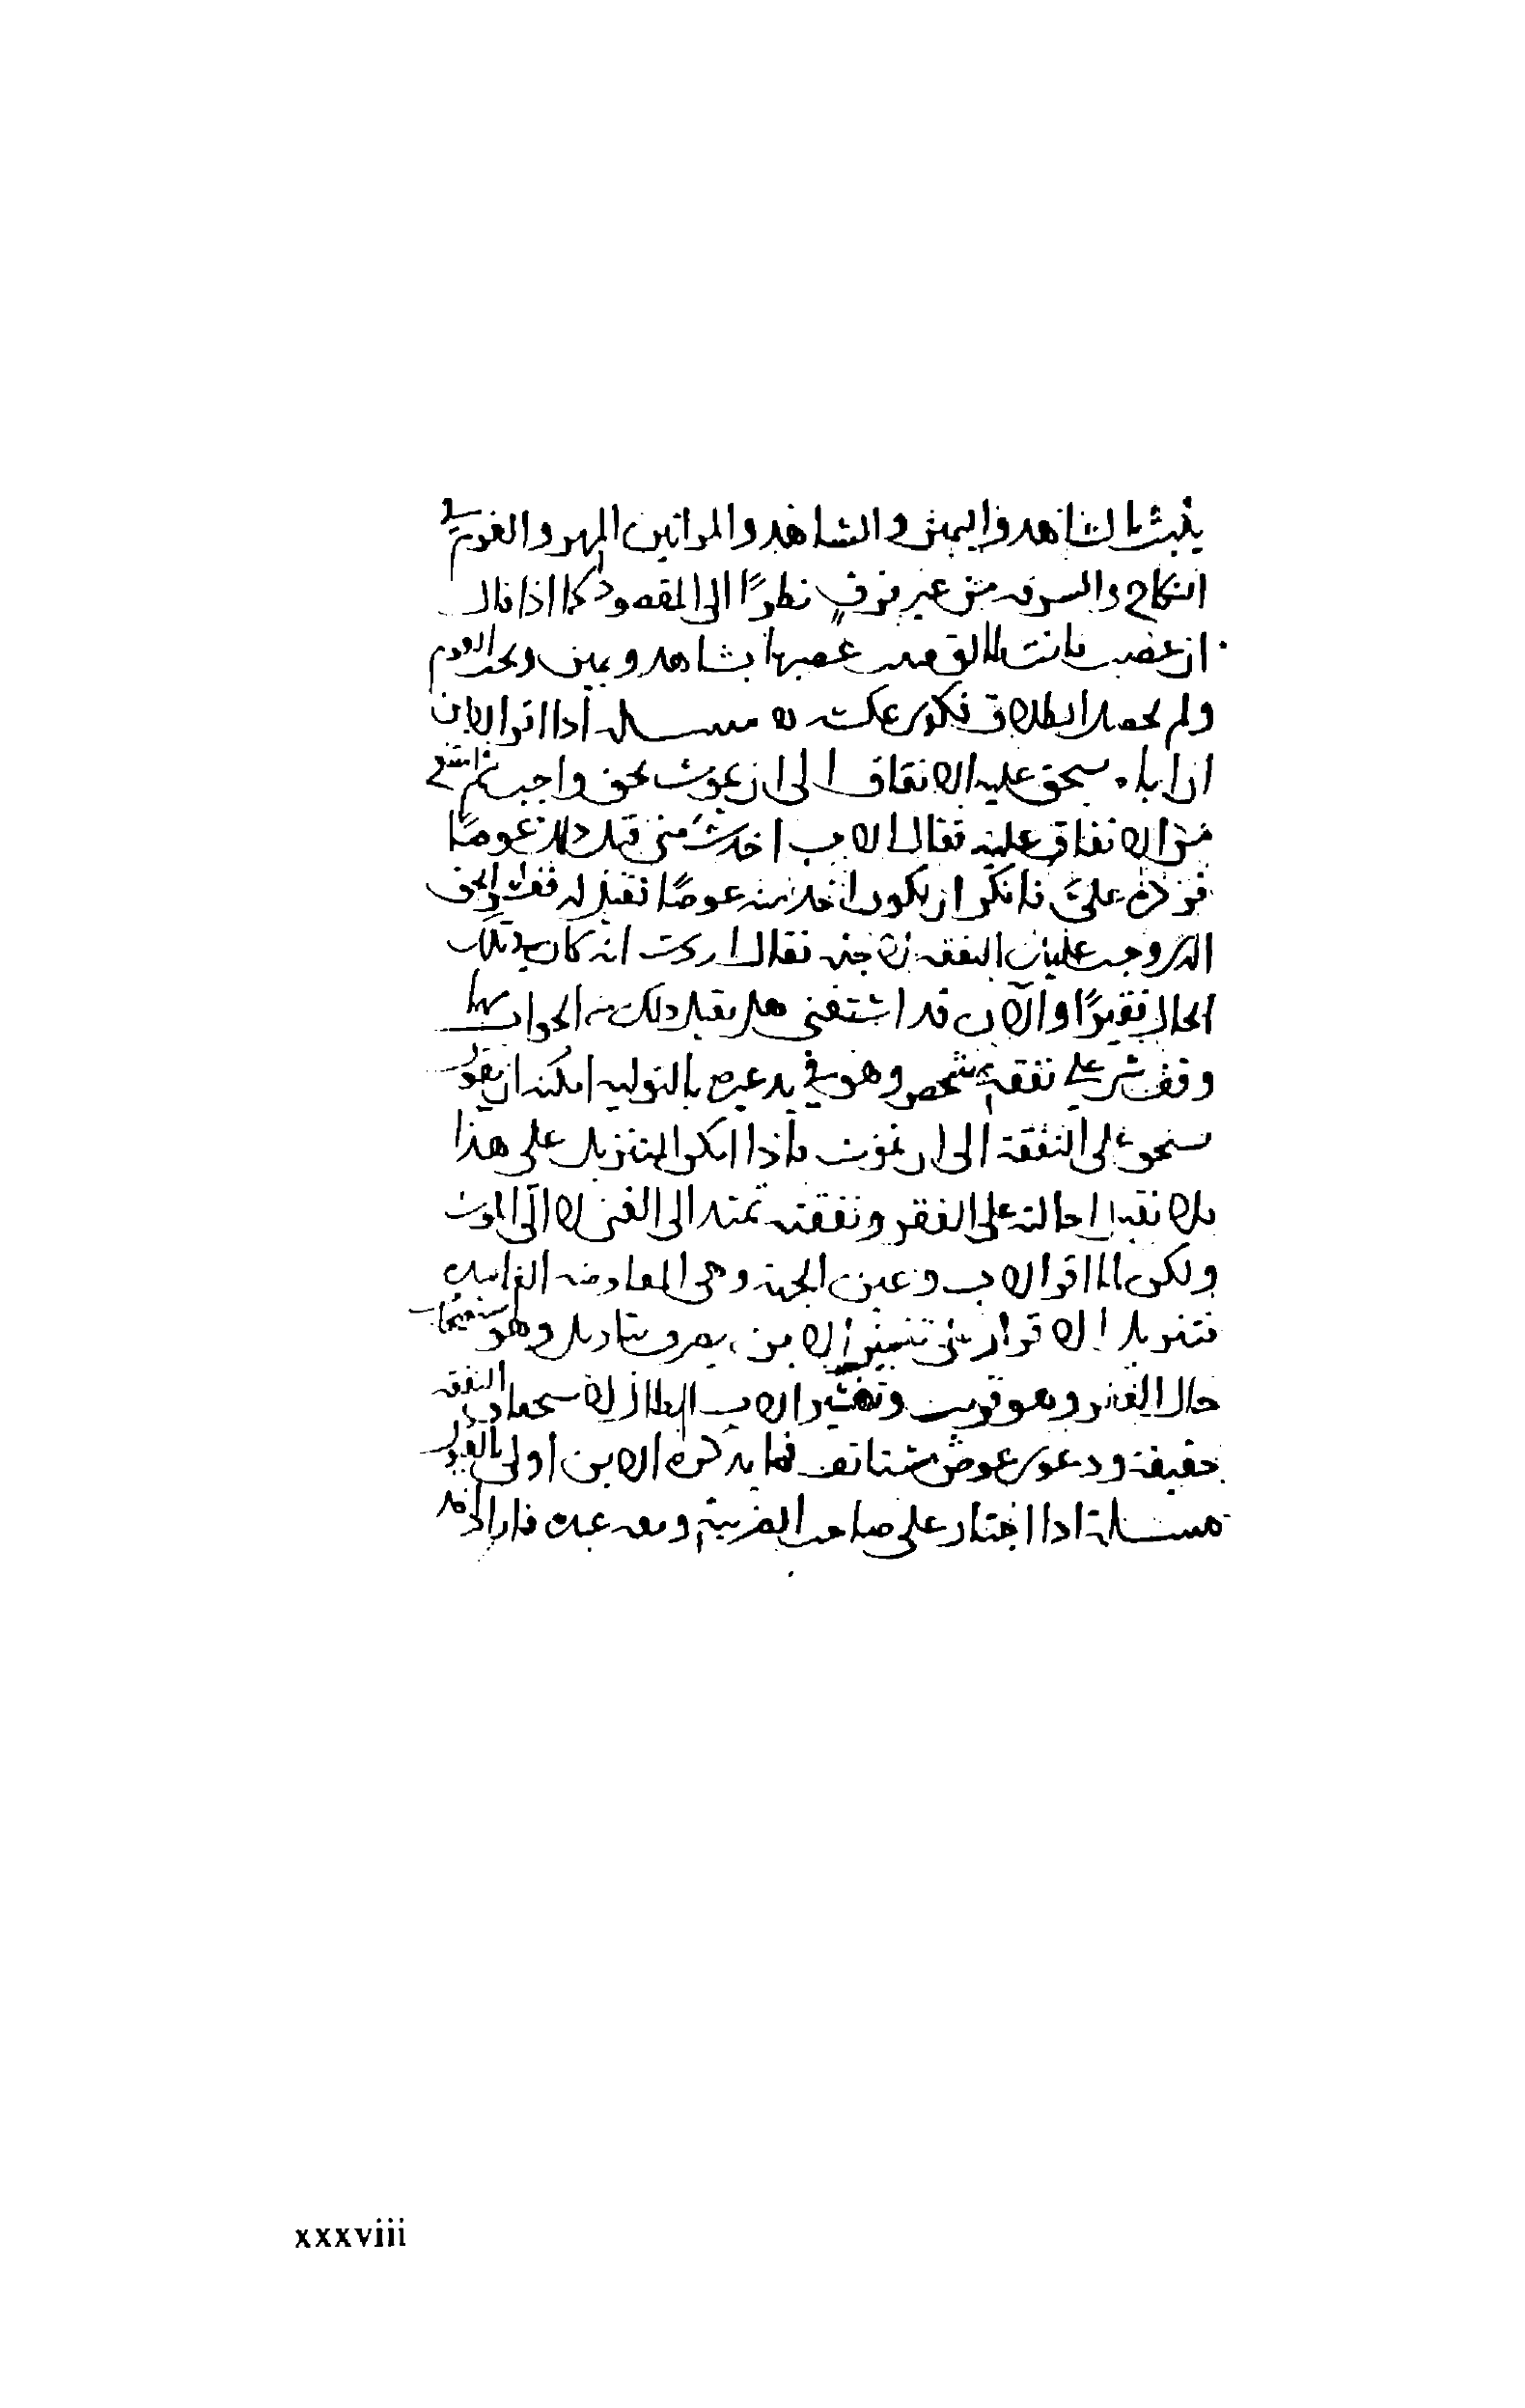 يثبت بالشاهد واليمين والشاهد والمراتين المهر والغرم في
النكاح والسرقه من غير فرق نظرًا الى المقصود كما اذا قال
ان غصبت فانت طالق غصبها بشاهد ويمين الغرم
ولم يحصل الطلاق مسله اذا اقر الابن
ان اباه يستحق عليه الانفاق الى ان يموت بحق واجب ثم امتنع
من الانفاق عليه فقال الاب اخذت منى قبل ذلك عوضًا
فرده على فانكر ان يكون اخذ منه عوضًا فقيل له فقلت الحق
الذى وجب عليك النفقه لاجله فقال اردت انه كان فى تلك
الحال فقيرًا والآن قد استغنى هل يقبل ذلك منه الجواب
وقف شى على نفقة شخص وهو فى يد غيره بالتوليه امكنه ان يقول
يستحق على النفقة الى ان يموت فاذا امكن التنزيل على هذا
فلا نقبل احالته على الفقر ونفقته تمتد الى الغنى لا الى الموت
ولكن لما اقر الاب وعين الجهة وهى المعاوضه الفاسده
فتنزيل الاقرار على تفسير الابن وهو
حال الفقر وهو قريب وتفسير الاب ابطال لاستحقاق النفقه
حقيقة ودعوى عوض مستانف فما يذكره الابن اولى بالقبول
مسلة اذا اجتاز على صاحب الضريبة ومعه عبد
xxxviii